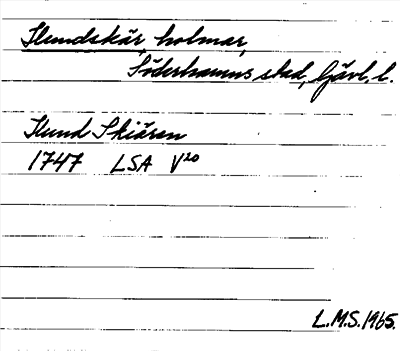 Hundskär, holmar,
Söderhamns stad, Gävl. l.
Hund Skiären
1747 LSA V20
L.M.S. 1965.